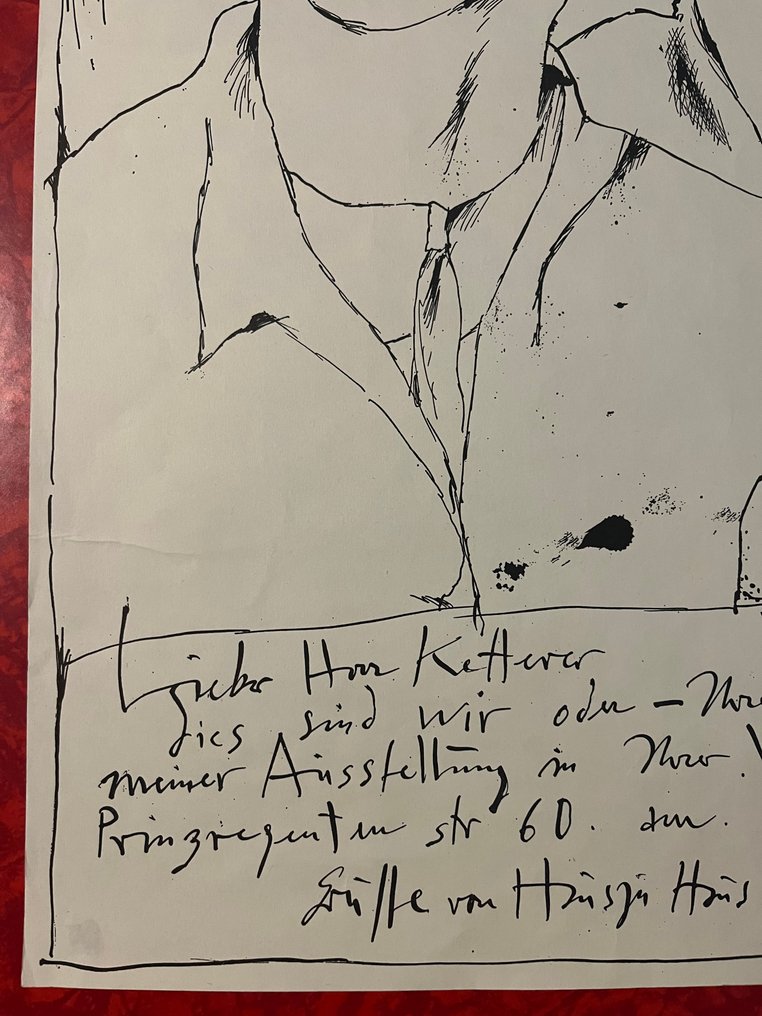 Lieber Herr Ketterer
dies sind wir oder –
meiner Ausstellung in Ihrer
Prinzregenten str 60. am.
Grüsse von Haus zu Haus